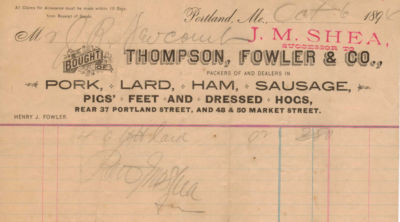 All Claims for Allowance must be made within 10 days,
from Receipt of Goods.
Portland, Me., Oct 6 189
M J R Newcomb
J. M. SHEA,
SUCCESSOR TO
BOUGHT OF
THOMPSON, FOWLER & CO.,
PACKERS OF AND DEALERS IN
PORK, LARD, HAM, SAUSAGE,
PIGS' FEET AND DRESSED HOGS,
REAR 37 PORTLAND STREET, AND 48 & 50 MARKET STREET.
HENRY J. FOWLER.
Lard
Shea